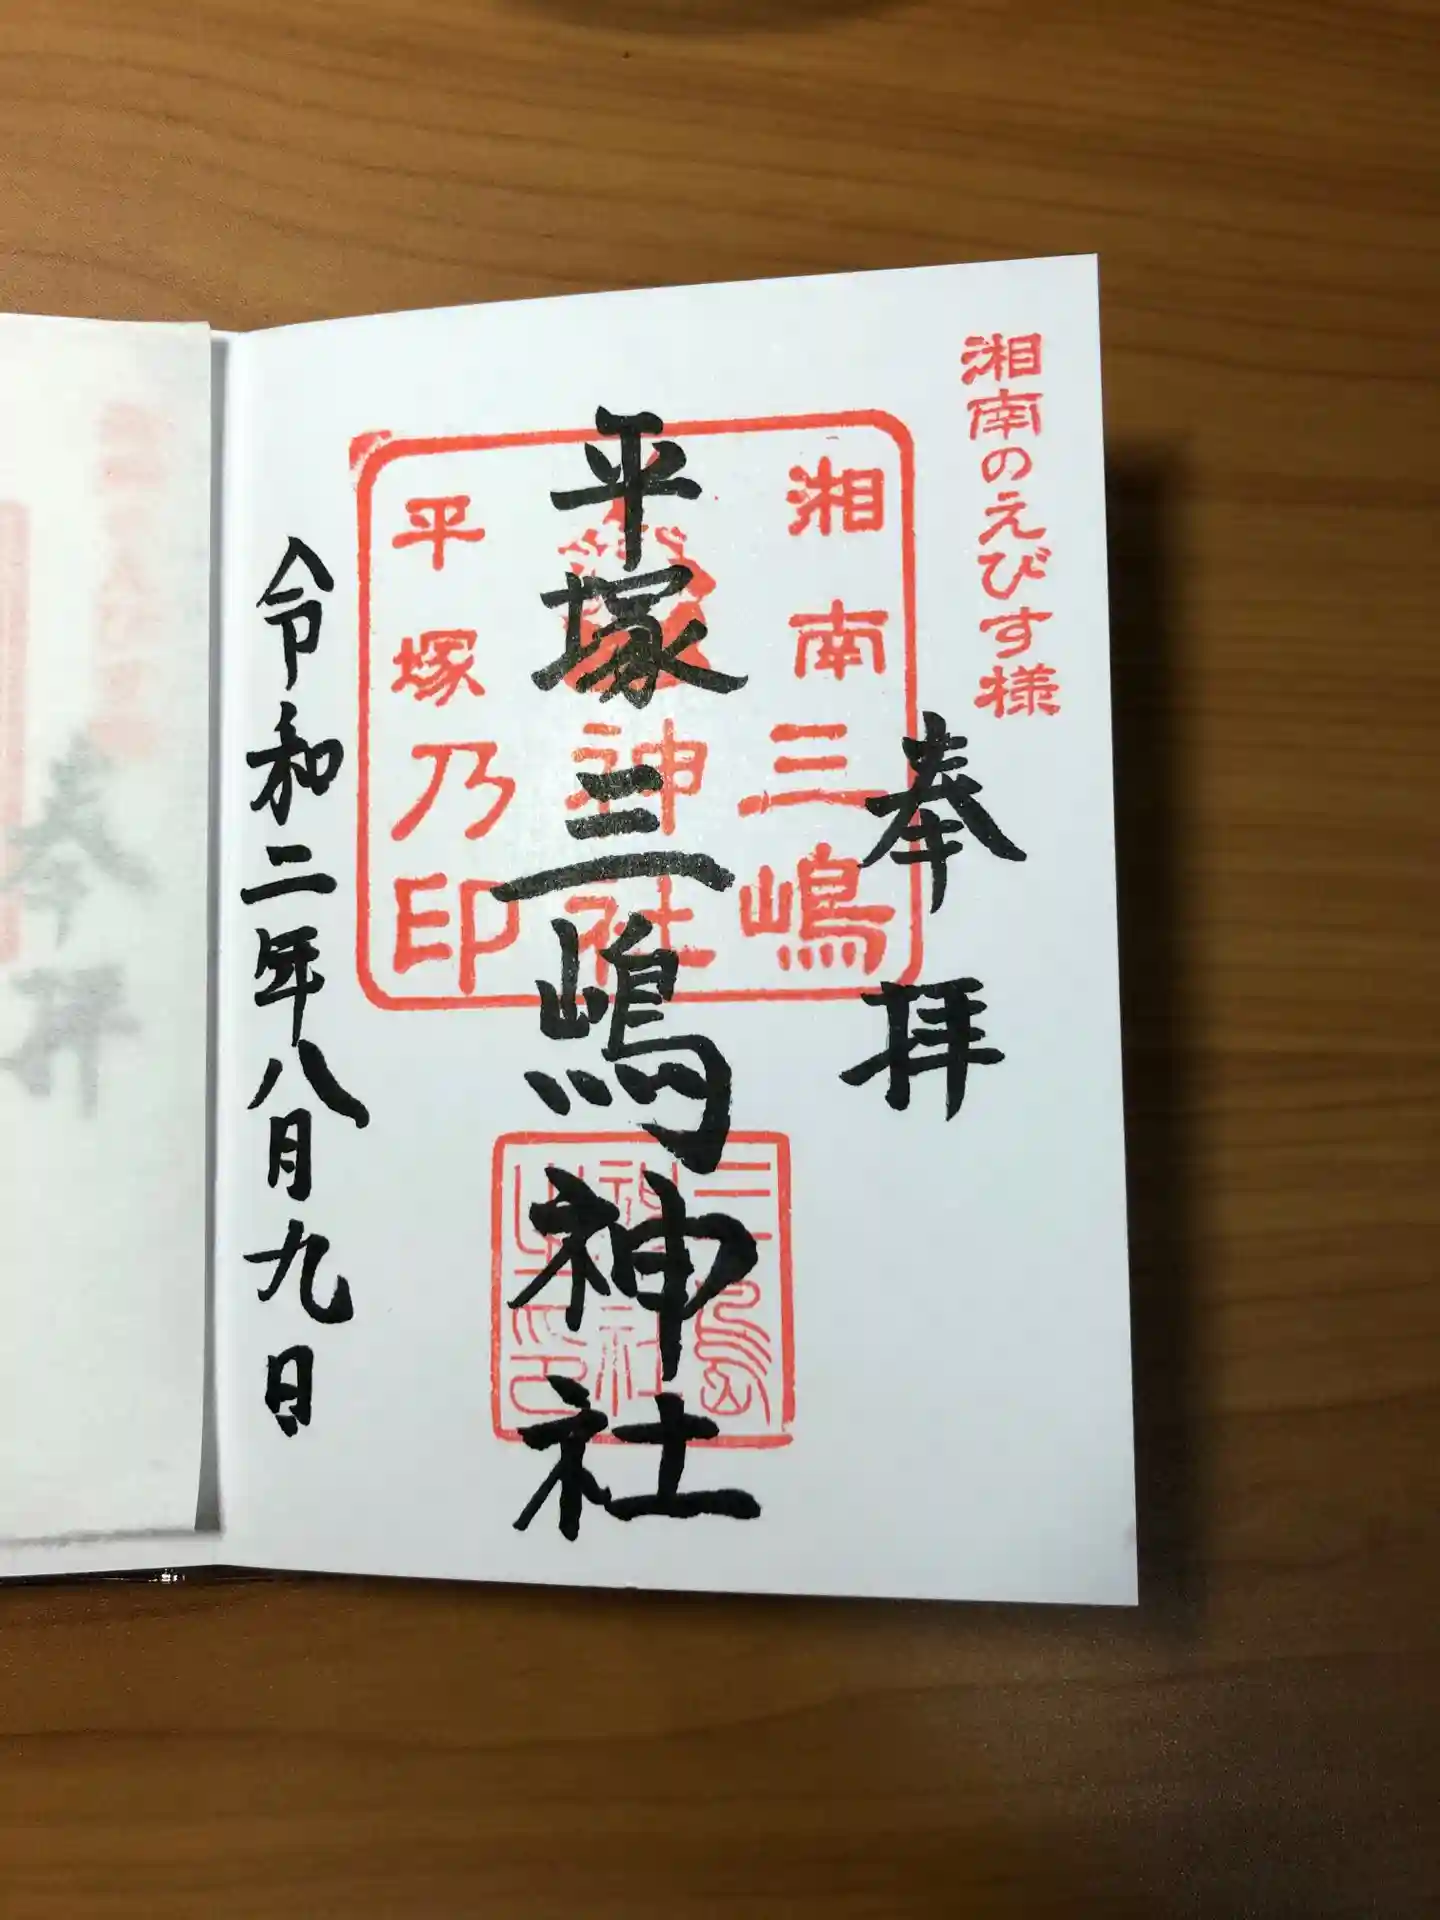 湘南のえびす様
奉拝
湘南三嶋
神社
平塚乃印
平塚三嶋神社
令和二年八月九日